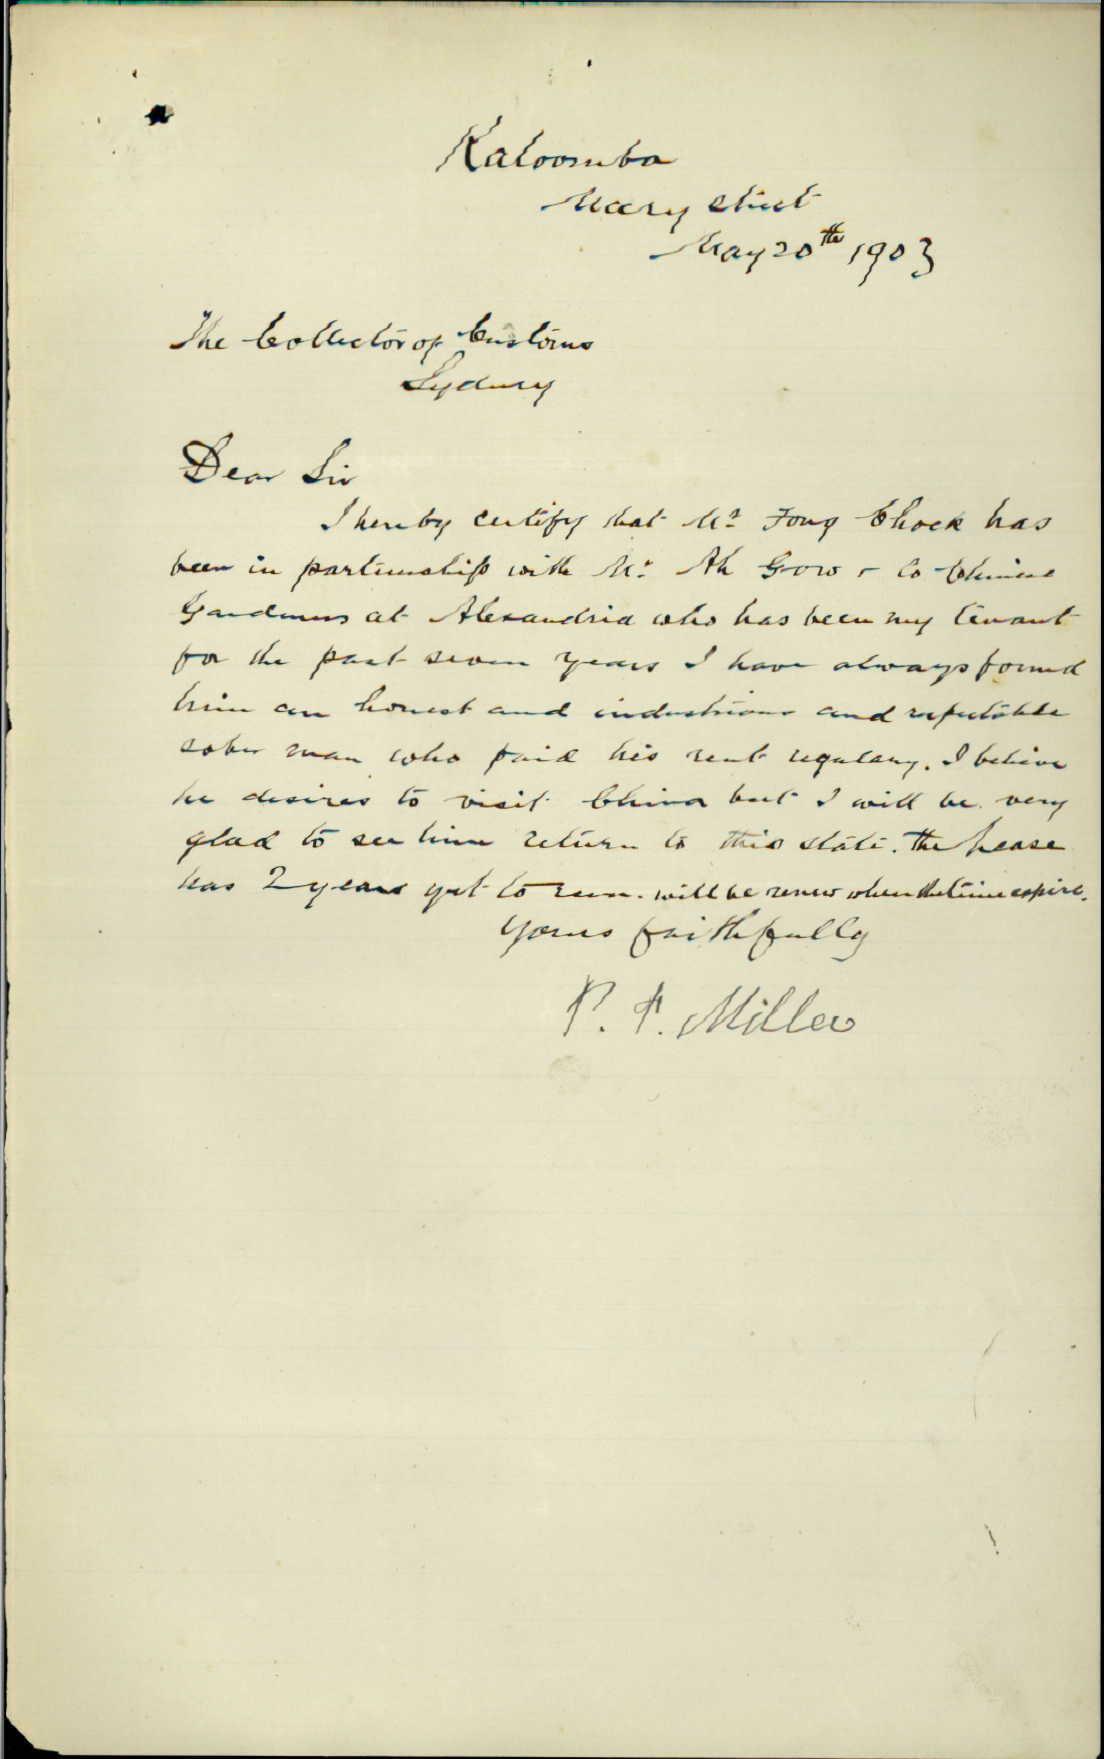 Katoomba
Mary Street
May 20th 1903
The Collector of Customs
Sydney
Dear Sir
I hereby certify that Mr Fong Chock has
been in partnership with Mr Ah Gow & Co Chinese
Gardeners at Alexandria who has been my tenant
for the past seven years I have always found
him an honest and industrious and reputable
sober man who paid his rent regulary. I believe
he desires to visit China but I will be very
glad to see him return to this state. The Lease
has 2 years yet to run. will be renew when the time expire.
Yours faithfully
P. F. Miller